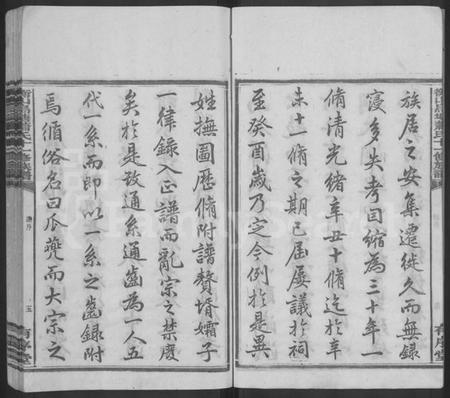 族居之安集遷徙久而無錄
寖多失考因縮為三十年一
脩清光緒辛丑十脩迄於辛
未十一脩之期已屆屢議於祠
至癸酉歲乃定今例於是異
姓撫圖歷脩附譜贅壻孀子
一律錄入正譜而亂宗之禁廢
矣於是改通系通齒為一人五
代一系而即以一系之齒錄附
焉循俗名曰瓜瓞而大宗之
五
有序堂